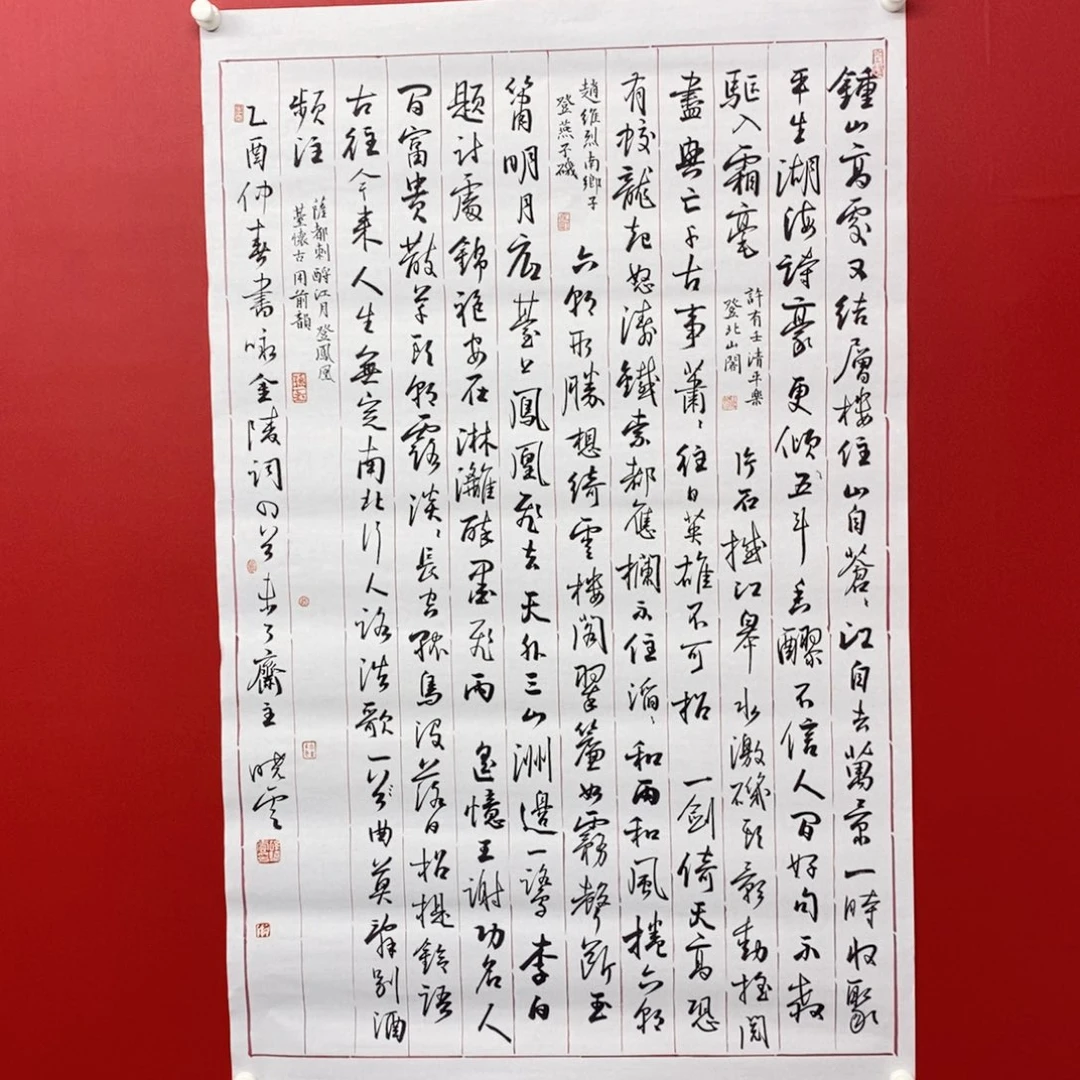 鍾山高處又結層樓住山自蒼〻江自去萬景一時收聚
平生湖海詩豪更傾五斗香醪不信人間好句不教
驅入霜毫
許有壬清平樂
登北山閣
片石撼江皋水激磯頭影動搖閱
盡興亡千古事蕭〻往日英雄不可招 一劍倚天高恐
有蛟龍起怒濤鐵索都應攔不住滔〻和雨和風捲六朝
趙維烈南鄉子
登燕子磯
六朝形勝想綺雲樓閣翠簾如霧聲斷玉
簫明月底臺上鳳凰飛去天外三山洲邊一鷺李白
題詩處錦袍安在淋灕醉墨飛雨 遙憶王謝功名人
間富貴散草頭朝露淡〻長空孤鳥沒落日招提鈴語
古往今來人生無定南北行人路浩歌一曲莫辭別酒
頻注
薩都剌酹江月登鳳凰
臺懷古用前韻
乙酉仲春書咏金陵詞四首未了齋主 曉雲